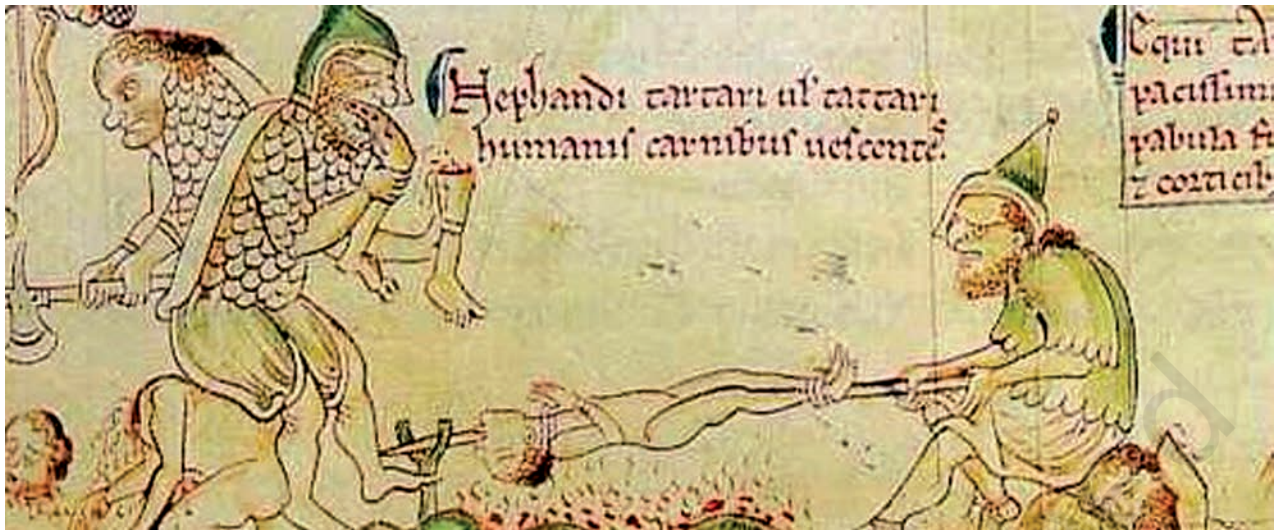 Nephandi tartari ul' tattari
humanis carnibus uescentes.
Equi
pacissimi
pabula
z corticib
d